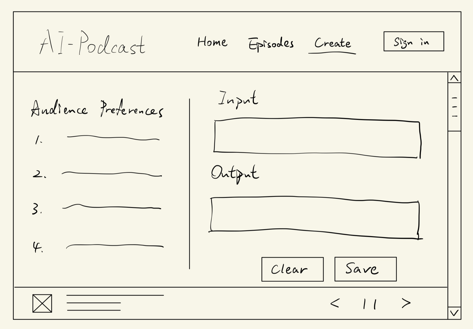 AI-Podcast
Home Episodes Create Sign in
Audience Preferences
1.
2.
3.
4.
Input
Output
Clear Save
< II >